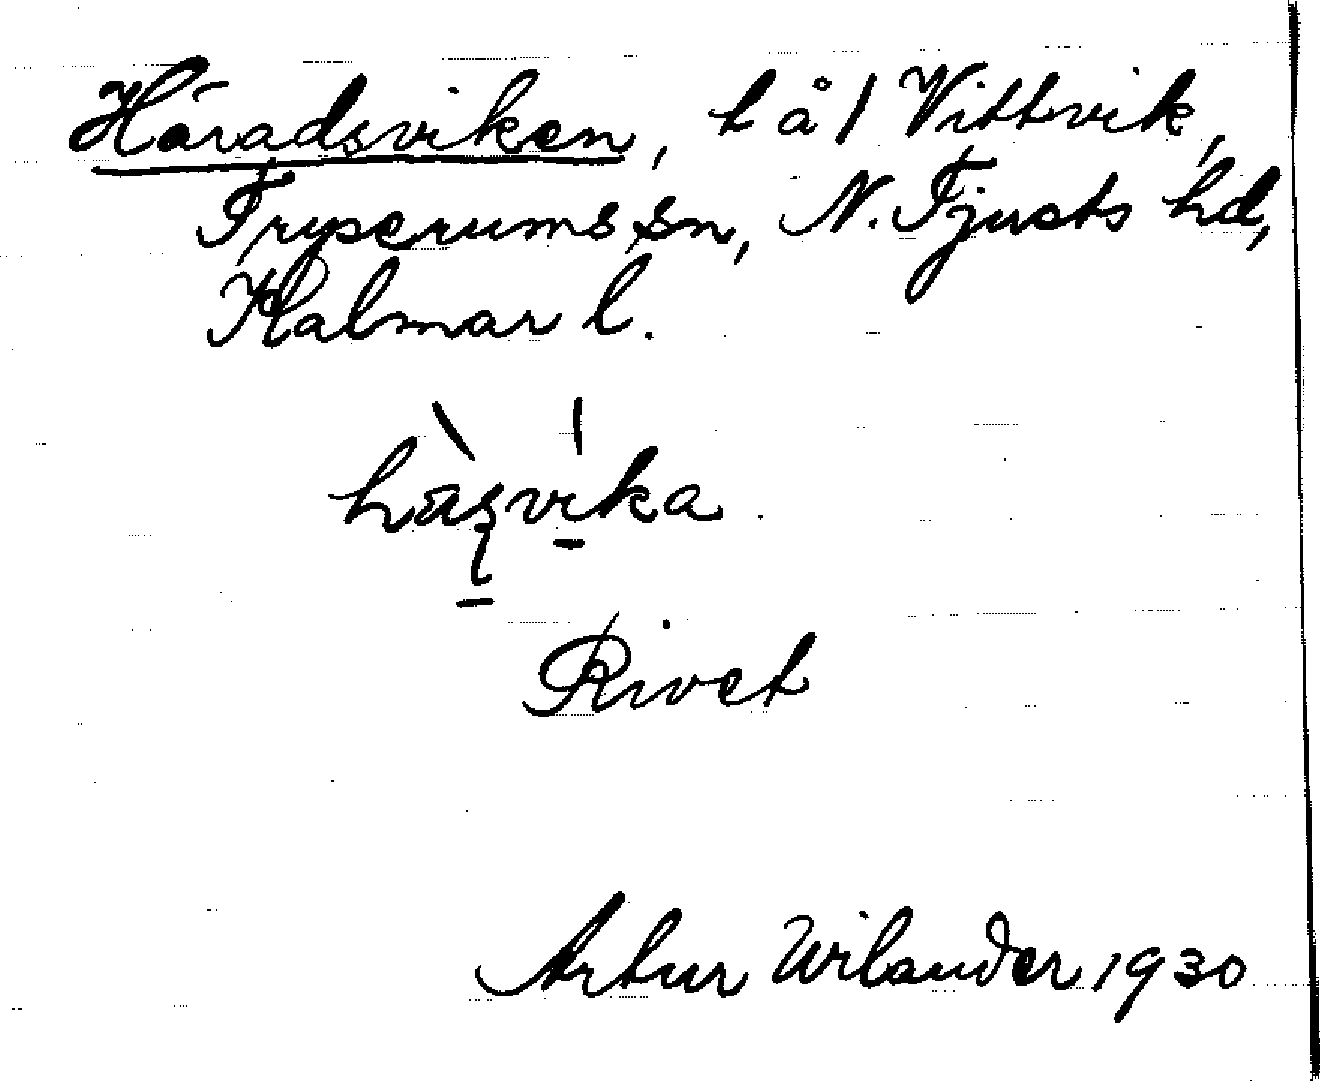 Häradsviken, t å l Vittvik,
Tryserums sn, N. Tjusts hd,
Kalmar l.
Rivet
Artur Wilander 1930